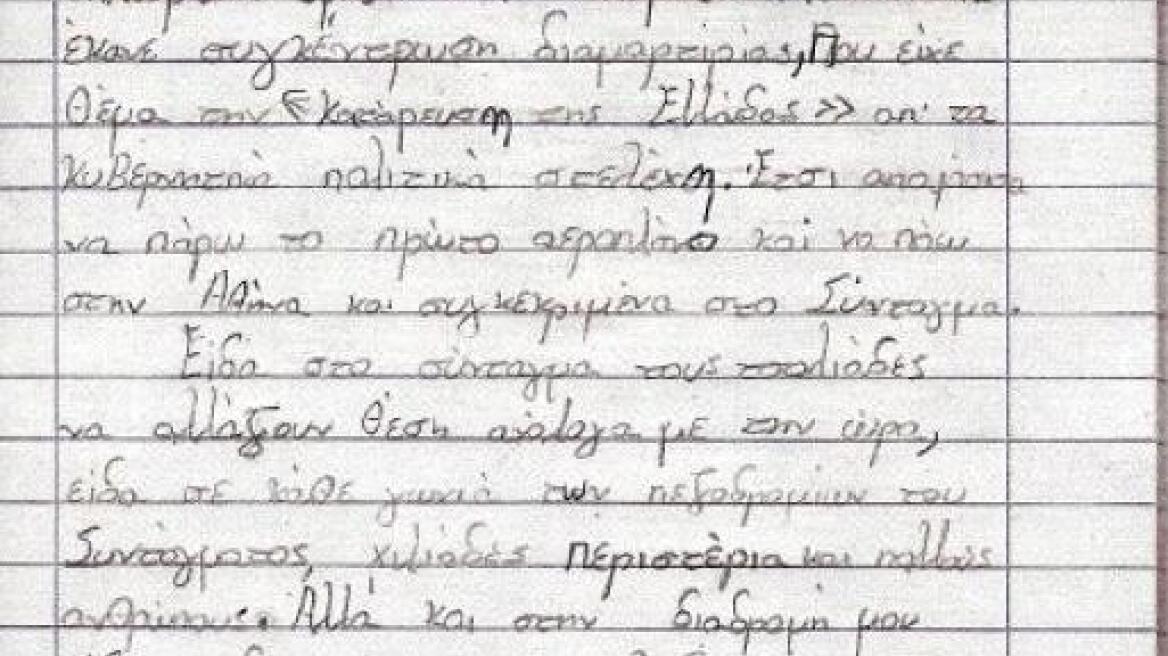 έκανε συγκέντρωση διαμαρτιρίας, Που είχε
θέμα την «κατάρευση της Ελλάδας» απ' τα
κυβερνητικά πολιτικά στελέχη. Έτσι αποφάσισα
να πάρω το πρώτο αεροπλάνο και να πάω
στην Αθήνα και συγκεκριμένα στο Σύνταγμα.
Είδα στο σύνταγμα τους τσολιάδες
να αλλάζουν θέση ανάλογα με την ώρα,
είδα σε κάθε γωνιά των πεζοδρομίων του
Συντάγματος, χιλιάδες περιστέρια και πολλούς
ανθρώπους. Αλλά και στην διαδρομή μου